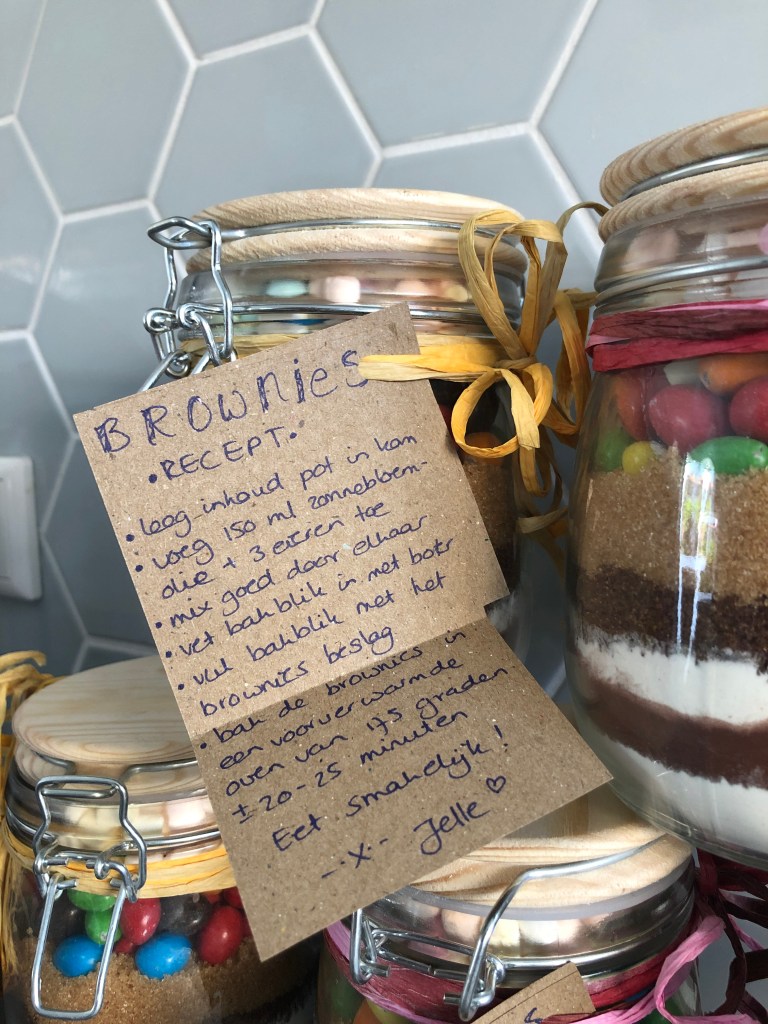 BROWNIES
•RECEPT•
• leeg inhoud pot in kom
• voeg 150 ml zonnebloem-
olie + 3 eieren toe
• mix goed door elkaar
• vet bakblik in met boter
• vul bakblik met het
brownies beslag
• bak de brownies in
een voorverwarmde
oven van 175 graden
± 20-25 minuten
Eet smakelijk!
-·x·- Jelle ♡